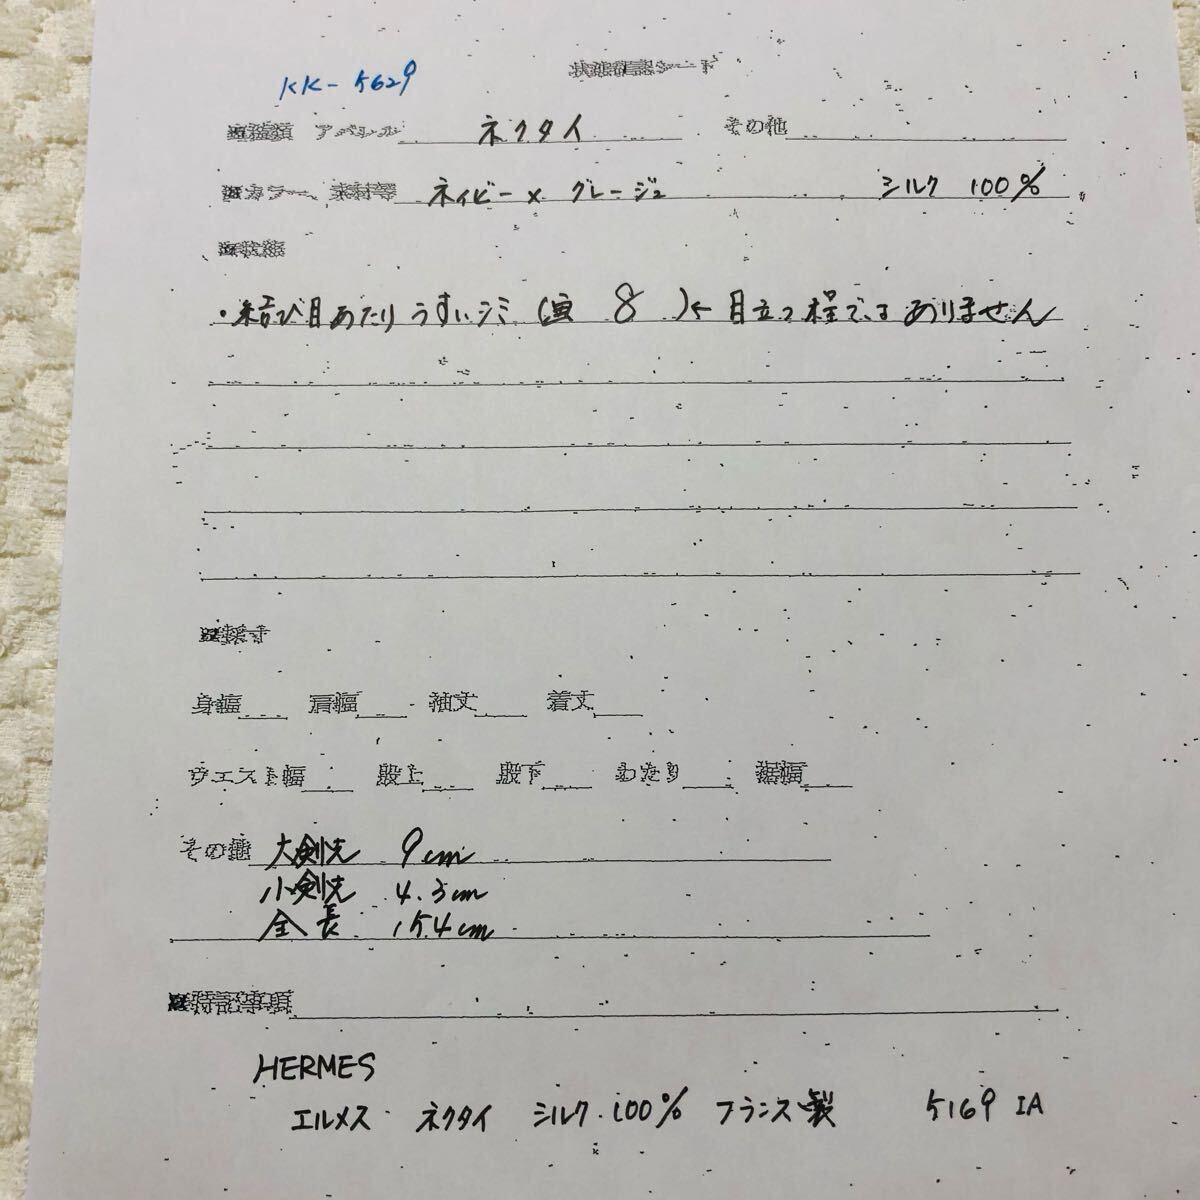 KK-5629
状態確認シート
■種類 アパレル ネクタイ その他
■カラー、素材等 ネイビー×グレージュ シルク 100%
■状態
・結び目あたりうすいシミ(画 8 )← 目立つ程ではありません
■採寸
身幅 肩幅 袖丈 着丈
ウエスト幅 股上 股下 わたり 裾幅
その他 大剣先 9cm
小剣先 4.3cm
全長 154cm
■特記事項
HERMES
エルメス ネクタイ シルク 100% フランス製 5169 IA